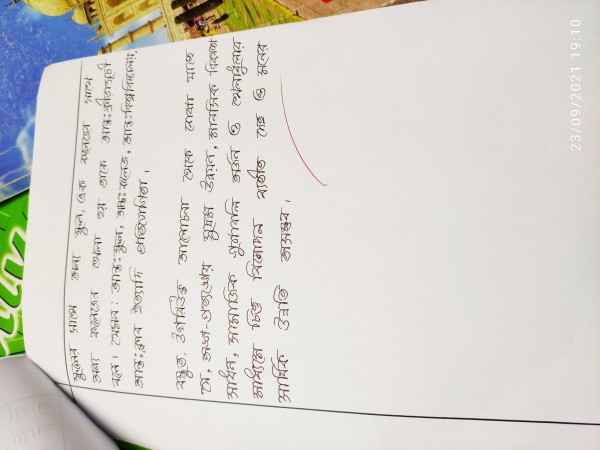 স্কুলের সাথে অন্য স্কুল, এক কলেজের সাথে
অন্য কলেজের খেলা হয় তাকে আন্তঃক্রীড়াসূচী
বলে। যেমন : আন্তঃস্কুল, আন্তঃকলেজ, আন্তঃবিশ্ববিদ্যালয়,
আন্তঃক্লাব ইত্যাদি প্রতিযোগিতা।
বস্তুত, উপরিউক্ত আলোচনা থেকে দেখা যাচ্ছে
যে, অঙ্গ-প্রত্যঙ্গের সুষম উন্নয়ন, মানসিক বিকাশ
সাধন, সামাজিক গুণাবলি অর্জন ও খেলাধুলার
মাধ্যমে চিত্ত বিনোদন ব্যতীত দেহ ও মনের
সার্বিক উন্নতি অসম্ভব।
23/09/2021 19:10